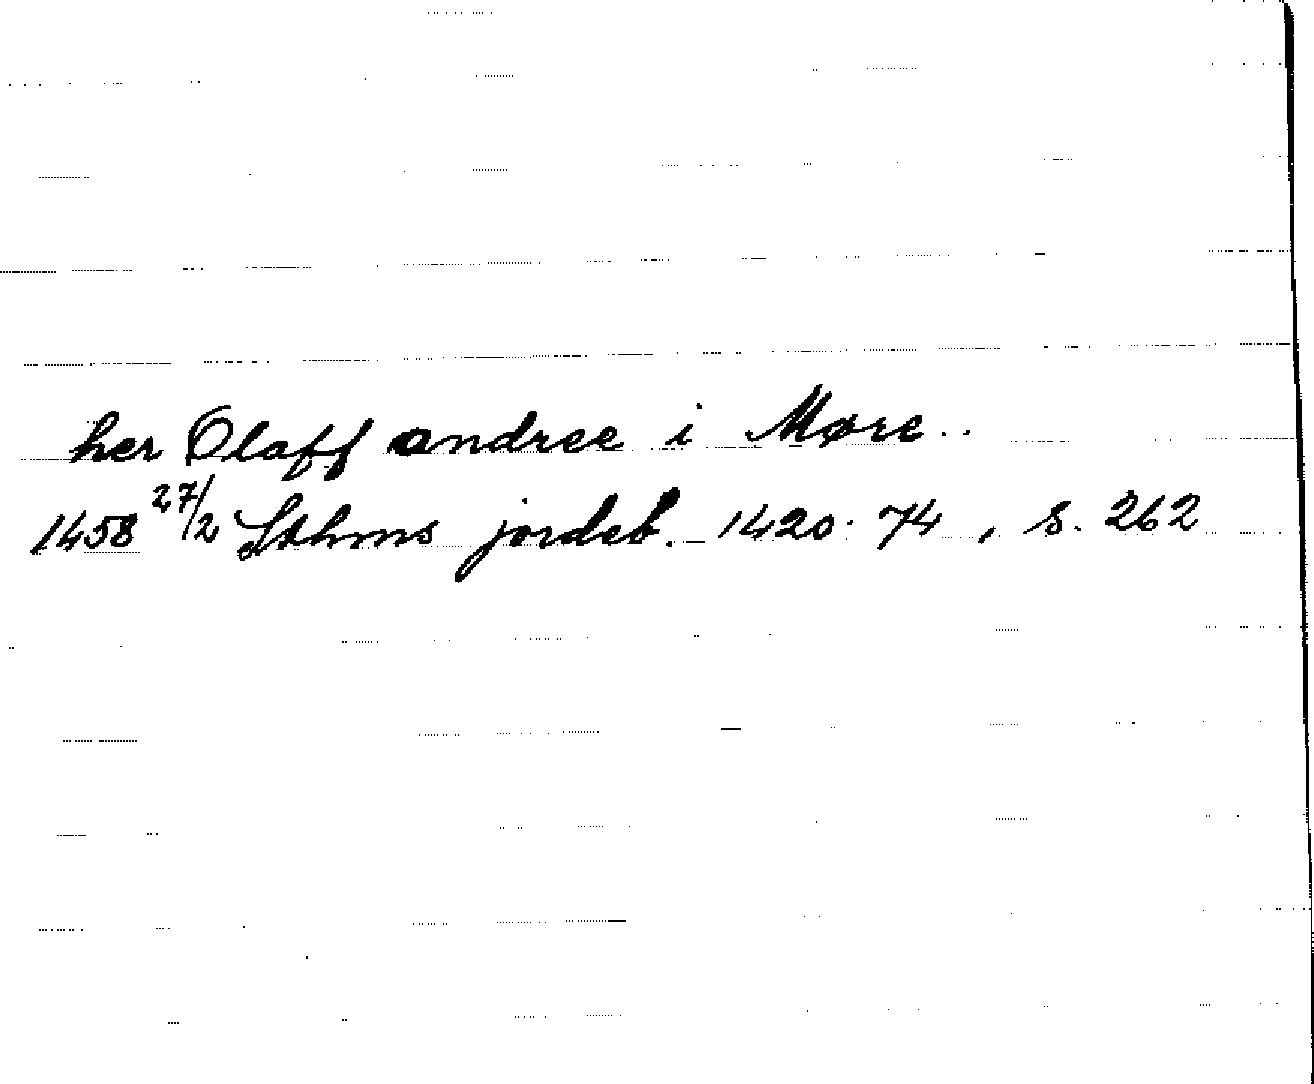 her Olaff andree i Møre..
1458 27/2 Sthms jordeb. 1420-74, s. 262